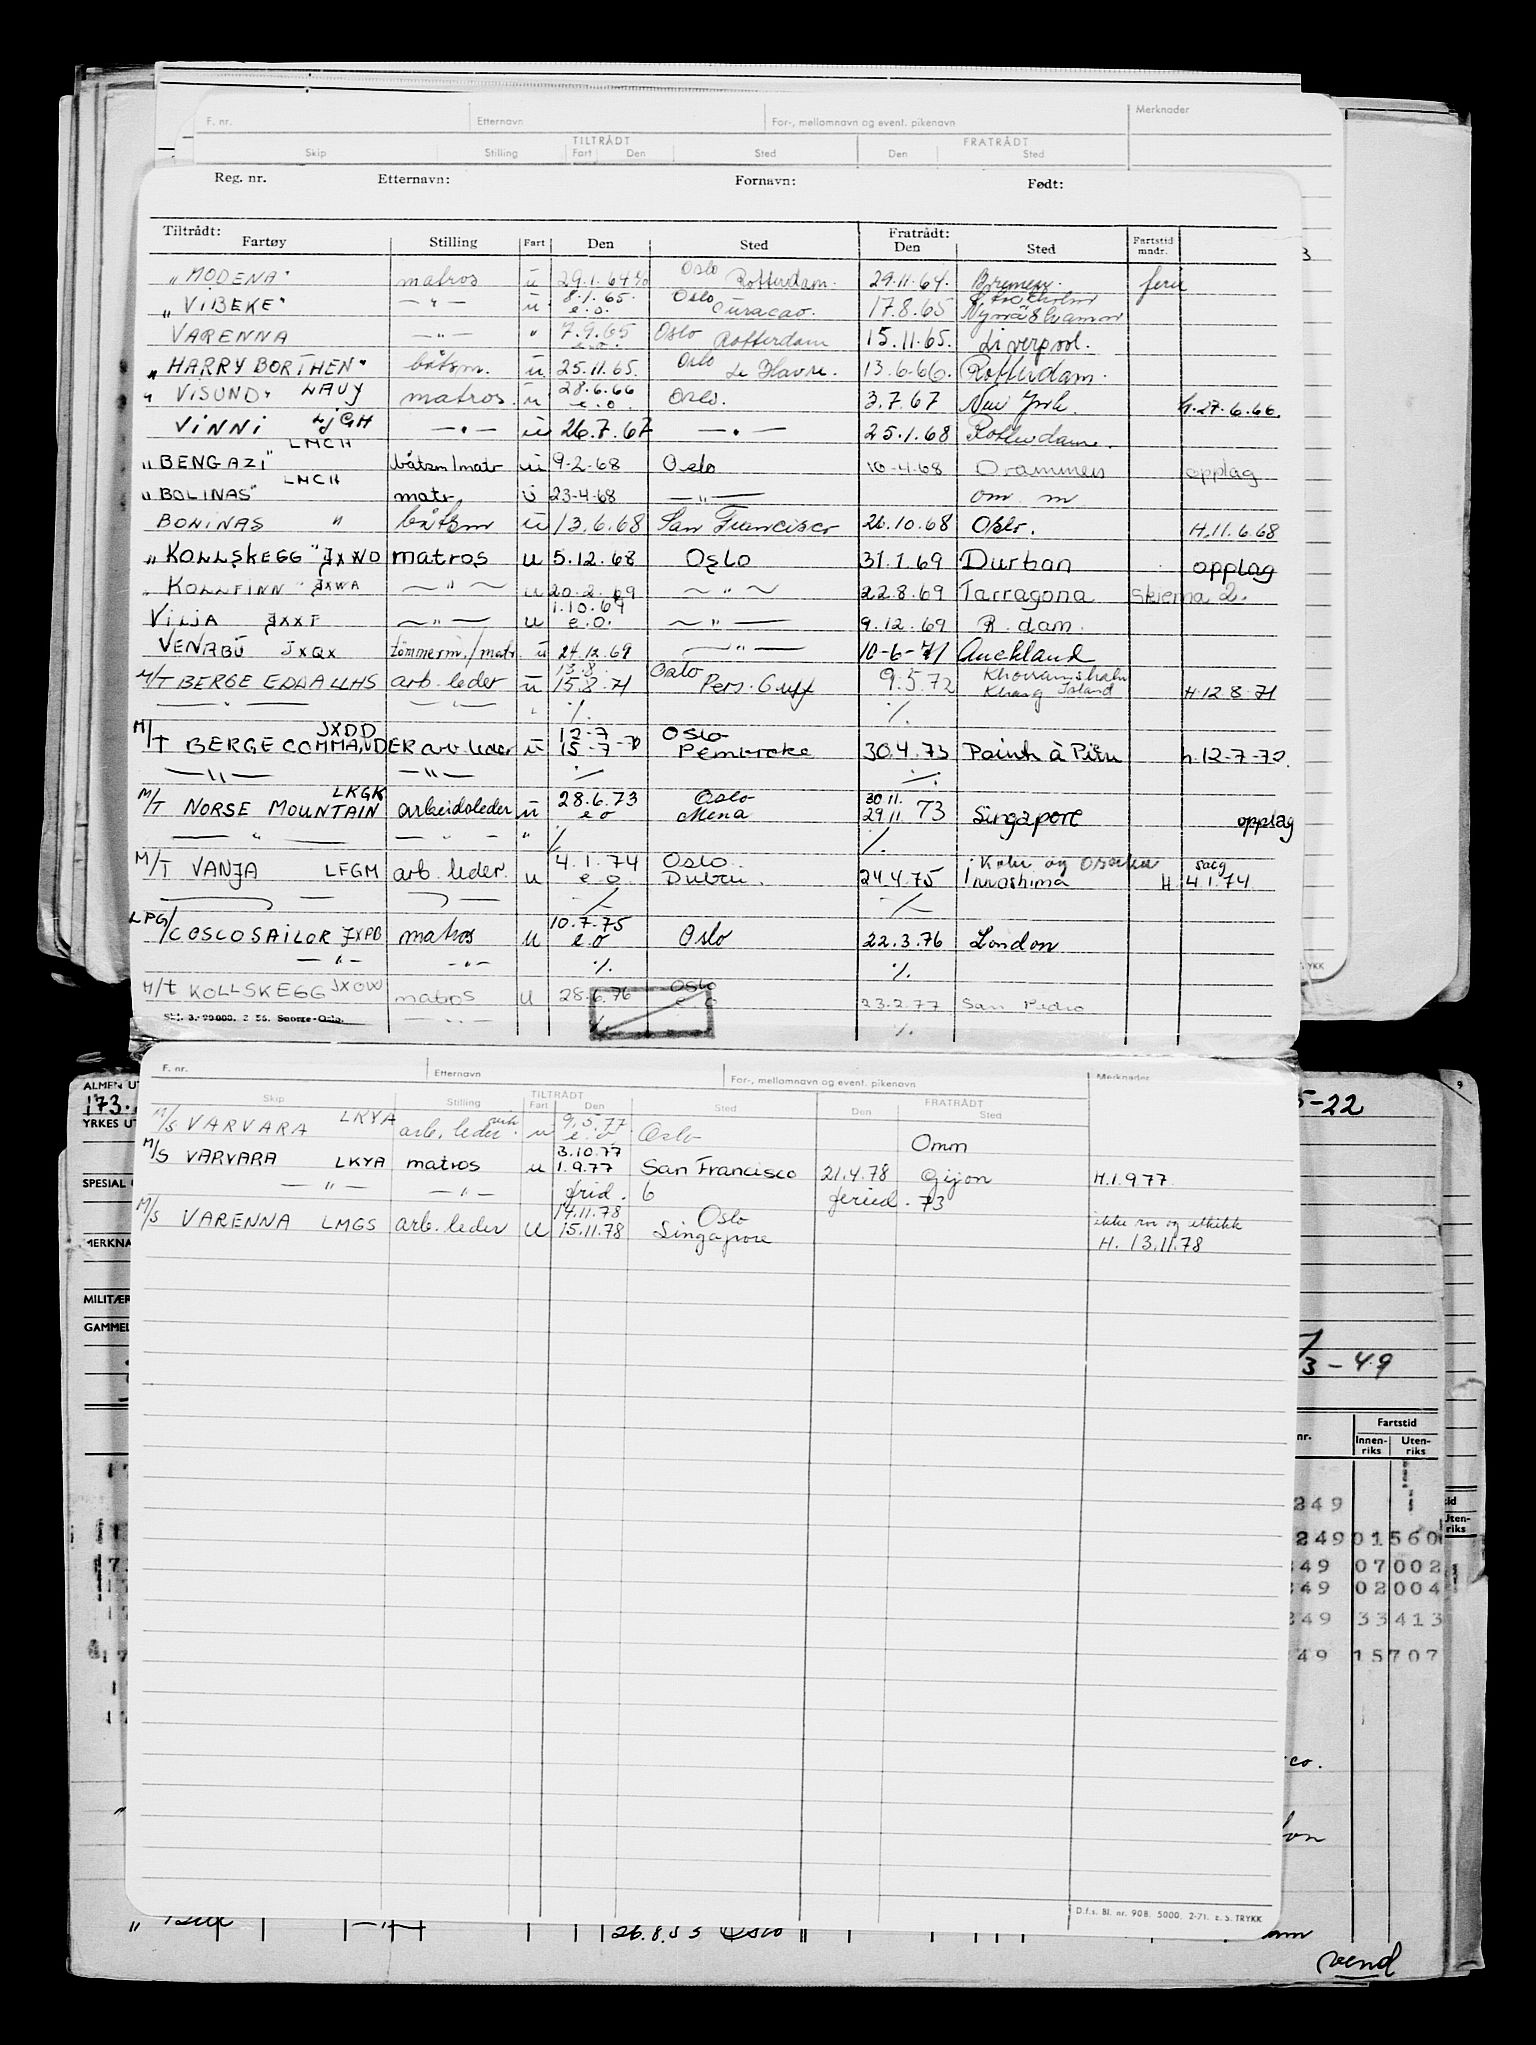 F. nr. Etternavn For-, mellomnavn og event. pikenavn Merknader
TILTRÅDT FRATRÅDT
Skip Stilling Fart Den Sted Den Sted
Reg. nr. Etternavn: Fornavn: Født:
Tiltrådt: Fratrådt:
Fartøy Stilling Fart Den Sted Den Sted Fartstid mndr.
"MODENA" matros u 29.1.64 Oslo Rotterdam. 29.11.64. Bremen. ferie
"VIBEKE" — " — u 8.1.65. e.o. Oslo Curacao. 17.8.65 Stockholm Nynäshamn
VARENNA — " — " 7.9.65 e.o. Oslo Rotterdam 15.11.65. Liverpool.
"HARRY BORTHEN" båtsm. u 25.11.65. Oslo Le Havre. 13.6.66. Rotterdam.
"VISUND" LAUY matros. u 28.6.66 e.o. Oslo. 3.7.67 New York. h.27.6.66.
VINNI LJGH — " — u 26.7.67 — " — 25.1.68 Rotterdam.
LMCH
"BENGAZI" båtsm/matr u 9-2-68 Oslo 10-4-68 Drammen opplag
LMCH
"BOLINAS" matr. u 23-4-68 — " — om. m
BONINAS " båtsm u 13.6.68 San Francisco 26.10.68 Oslo. H.11.6.68
"KOLLSKEGG" JXWD matros u 5.12.68 Oslo 31.1.69 Durban opplag
"KOLLFINN" JXWA — " — u 20.2.69 — " — 22.8.69 Tarragona Skjema 2.
VILJA JXXF — " — u 1.10.69 e.o. — " — 9.12.69 R.dam.
VENABU JXQX tømmerm./matr u 24.12.69 — " — 10-6-71 Auckland
M/T BERGE EDDA LLHS arb. leder u 13.8. 15.8.71 Oslo Pers. Gulf 9.5.72 Khorramshahr Kharg Island H.12.8.71
— " — — " — " ./. ./.
JXDD
M/T BERGE COMMANDER arb. leder u 12-7 15-7-72 Oslo Pembroke 30.4.73 Point à Pitre h.12-7-72.
— " — — " — ./. ./.
LKGK
M/T NORSE MOUNTAIN arbeidsleder u 28.6.73 e o Oslo Mena 30.11. 29.11 73 Singapore opplag
— " — — " — " ./. ./.
M/T VANJA LFGM arb. leder. u 4.1.74 e.o. Oslo. Dubai. 24.4.75 Kobe og Osaka Innoshima H. 4.1.74
./. ./.
LPG/COSCOSAILOR JXPD matros u 10.7.75 e.o Oslo 22.3.76 London
— " — — " — ./. ./.
M/T KOLLSKEGG JXOW matros u 28.6.76 Oslo e o 23.2.77 San Pedro
— " — ./. ./.
Skj. 3.-90000. 2 56. Saorze-Oslo.
F. nr. Etternavn For-, mellomnavn og event. pikenavn Merknader
TILTRÅDT FRATRÅDT
Skip Stilling Fart Den Sted Den Sted
M/S VARVARA LKYA arb. leder u 9.5.77 e.o Oslo Omm
M/S VARVARA LKYA matros u 3.10.77 1.9.77 San Francisco 21.4.78 Gijon H.1.9.77
— " — — " — frid. 6 feried. 73
M/S VARENNA LMGS arb. leder u 14.11.78 15.11.78 Oslo Singapore ikke ror og utkikk H. 13.11.78
D.f.s. Bl. nr. 908. 5000. 2-71. E. S. TRYKK
ALMEN UT
173.
YRKES UT
SPESIAL
MERKNA
MILITÆR
GAMMEL
5-22
3-49
Fartstid
nr. Innen-riks Uten-riks
249
249 01 560
49 07 002
49 02 004
249 33 413
49 15 707
co.
26.8.55 Oslo
vend